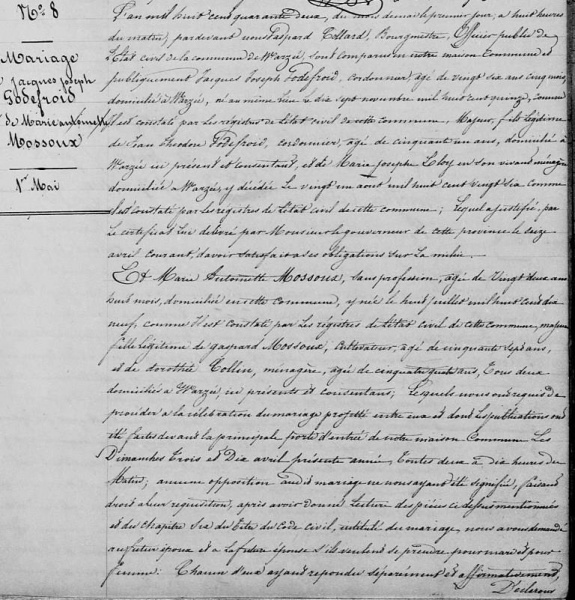 N° 8
Mariage
Jacques Joseph
Godefroid
& de Marie antoinette
Mossoux
1er Mai
L'an mil huit cent quarante deux, du mois de mai le premier jour, à huit heures
du matin, pardevant nous Gaspard Collard, Bourgmestre, Officier public de
l'Etat civil de la commune de Warzée, sont comparus en notre maison Commune et
publiquement Jacques Joseph Godefroid, cordonnier, agé de vingt six ans cinq mois
domicilié à Warzée, né au même lieu le dix sept novembre mil huit cent quinze, comme
il est constaté par les registres de l'état civil de cette commune, Majeur, fils légitime
de Jean Theodore Godefroid, cordonnier, agé de cinquante un ans, domicilié à
Warzée ici présent et consentant, et de Maria Joseph Eloy en son vivant ménagère
domiciliée à Warzée, y décédée le vingt un aout mil huit cent vingt six comme
il est constaté par les registres de l'état civil de cette commune; Lequel a justifié, par
le certificat lui délivré par Monsieur le gouverneur de cette province le seize
avril courant, d'avoir satisfait à ses obligations sur la milice.
Et Marie Antoinette Mossoux, sans profession, agée de Vingt deux ans
huit mois, domiciliée en cette commune, y née le huit juillet mil huit cent dix
neuf, comme il est constaté par les régistres de l'état civil de cette commune, majeure
fille légitime de gaspard Mossoux, cultivateur, agé de cinquante sept ans,
et de dorothée Collin, ménagère, agée de cinquante quatre ans, Tous deux
domiciliés à Warzée, ici présents et consentans; Lesquels nous ont requis de
procéder à la célébration du mariage projetté entre eux et dont les publications ont
été faites devant la principale porte d'entrée de notre maison Commune Les
Dimanches Trois et Dix avril présente année, Toutes deux à dix heures du
Matin; aucune opposition audit mariage ne nous ayant été signifiée, faisant
droit à leur requisition, après avoir donné Lecture des pièces ci dessus mentionnées
et du chapitre six du titre du Code civil, intitulé du mariage, nous avons demandé
au futur époux et à la future épouse s'ils veulent se prendre pour mari et pour
femme: Chacun d'eux ayant répondu séparément et affirmativement,
Déclarons